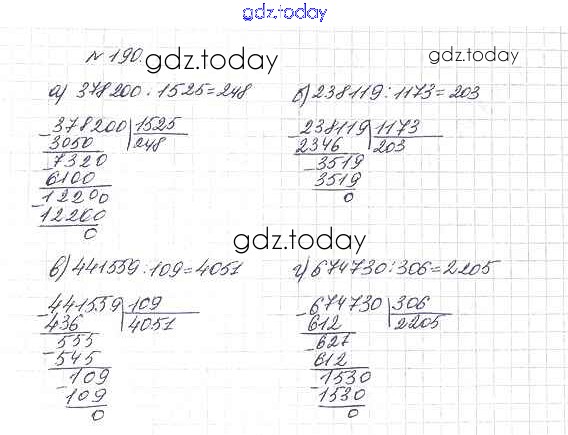 gdz.today
№ 190.
gdz.today
gdz.today
а) 378200 : 1525 = 248
378200 | 1525
3050 | 248
7320
6100
12200
12200
0
б) 238119 : 1173 = 203
238119 | 1173
2346 | 203
3519
3519
0
gdz.today
в) 441559 : 109 = 4051
441559 | 109
436 | 4051
555
545
109
109
0
г) 674730 : 306 = 2205
674730 | 306
612 | 2205
627
612
1530
1530
0